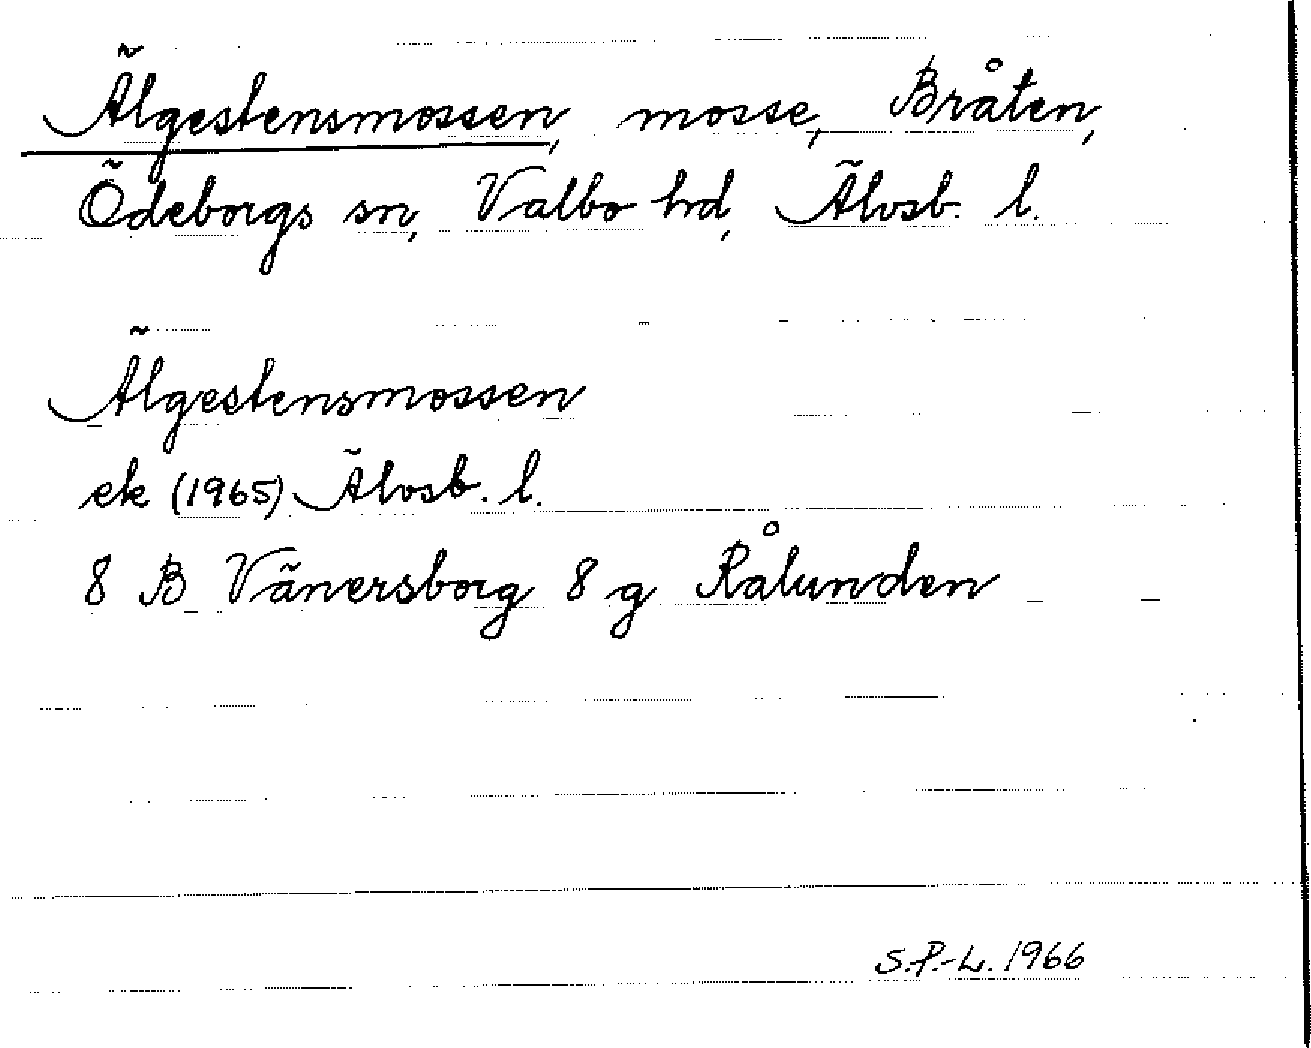 Älgestensmossen, mosse, Bråten,
Ödeborgs sn, Valbo hd, Älvsb. l.
Älgestensmossen
ek (1965) Älvsb. l.
8 B Vänersborg 8 g Rålunden
S.P.-L. 1966